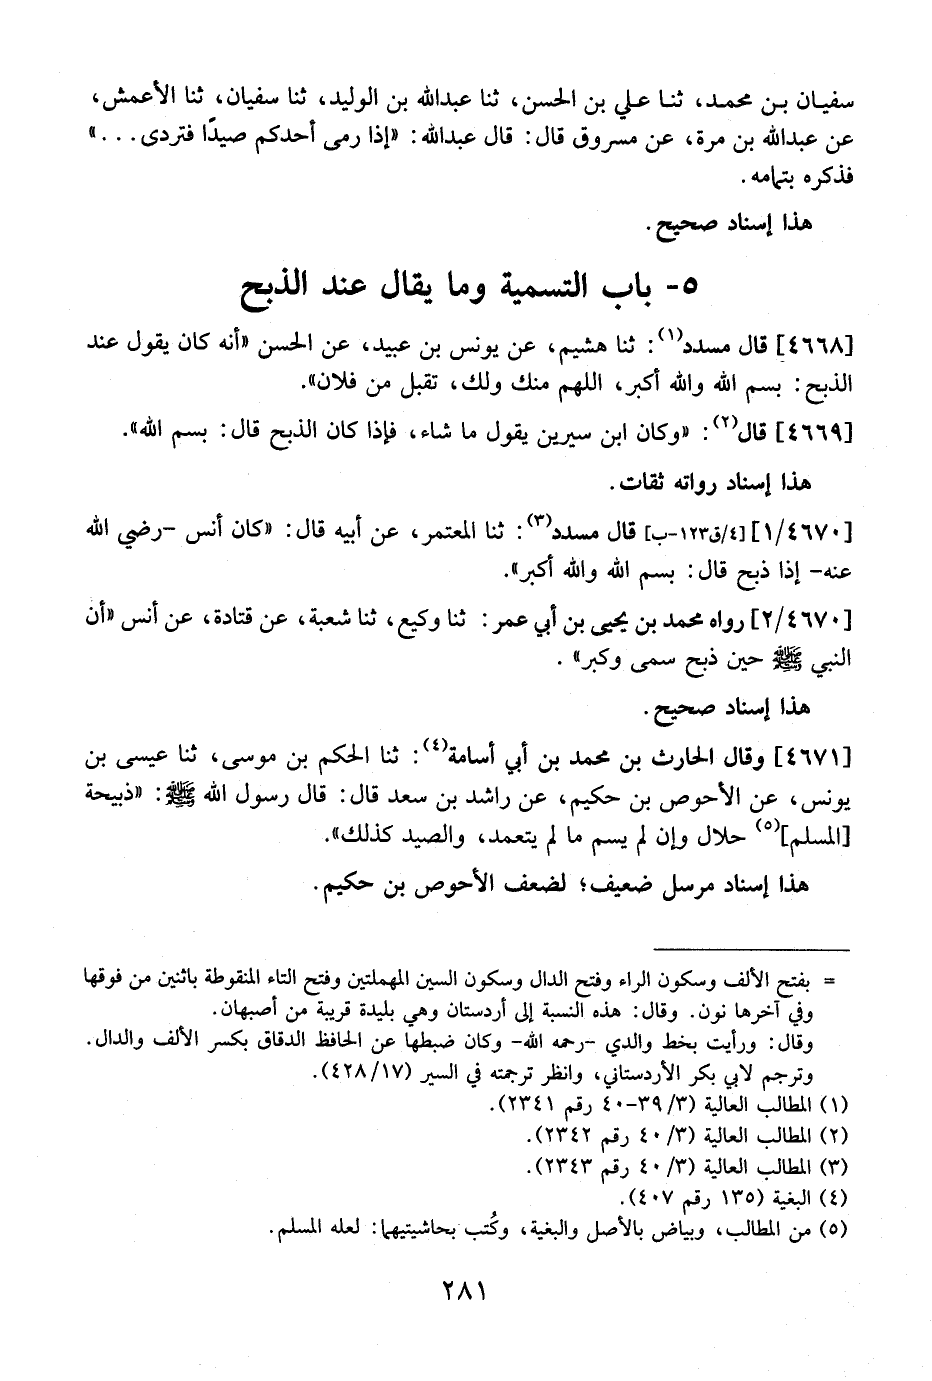 سفيان بن محمد، ثنا علي بن الحسن، ثنا عبدالله بن الوليد، ثنا سفيان، ثنا الأعمش،
عن عبدالله بن مرة، عن مسروق قال: قال عبدالله: «إذا رمى أحدكم صيدًا فتردى...»
فذكره بتمامه.
هذا إسناد صحيح.
٥- باب التسمية وما يقال عند الذبح
[٤٦٦٨] قال مسدد(١): ثنا هشيم، عن يونس بن عبيد، عن الحسن «أنه كان يقول عند
الذبح: بسم الله والله أكبر، اللهم منك ولك، تقبل من فلان».
[٤٦٦٩] قال(٢): «وكان ابن سيرين يقول ما شاء، فإذا كان الذبح قال: بسم الله».
هذا إسناد رواته ثقات.
[١/٤٦٧٠] [٤/ق١٢٣-ب] قال مسدد(٣): ثنا المعتمر، عن أبيه قال: «كان أنس -رضي الله
عنه- إذا ذبح قال: بسم الله والله أكبر».
[٢/٤٦٧٠] رواه محمد بن يحيى بن أبي عمر: ثنا وكيع، ثنا شعبة، عن قتادة، عن أنس «أن
النبي ﷺ حين ذبح سمى وكبر» .
هذا إسناد صحيح.
[٤٦٧١] وقال الحارث بن محمد بن أبي أسامة(٤): ثنا الحكم بن موسى، ثنا عيسى بن
يونس، عن الأحوص بن حكيم، عن راشد بن سعد قال: قال رسول الله ﷺ: «ذبيحة
[المسلم](٥) حلال وإن لم يسم ما لم يتعمد، والصيد كذلك».
هذا إسناد مرسل ضعيف؛ لضعف الأحوص بن حكيم.
= بفتح الألف وسكون الراء وفتح الدال وسكون السين المهملتين وفتح التاء المنقوطة باثنين من فوقها
وفي آخرها نون. وقال: هذه النسبة إلى أردستان وهي بليدة قريبة من أصبهان.
وقال: ورأيت بخط والدي -رحمه الله- وكان ضبطها عن الحافظ الدقاق بكسر الألف والدال.
وترجم لابي بكر الأردستاني، وانظر ترجمته في السير (٤٢٨/١٧).
(١) المطالب العالية (٣/ ٣٩-٤٠ رقم ٢٣٤١).
(٢) المطالب العالية (٣/ ٤٠ رقم ٢٣٤٢).
(٣) المطالب العالية (٣/ ٤٠ رقم ٢٣٤٣).
(٤) البغية (١٣٥ رقم ٤٠٧).
(٥) من المطالب، وبياض بالأصل والبغية، وكُتب بحاشيتيهما: لعله المسلم.
٢٨١